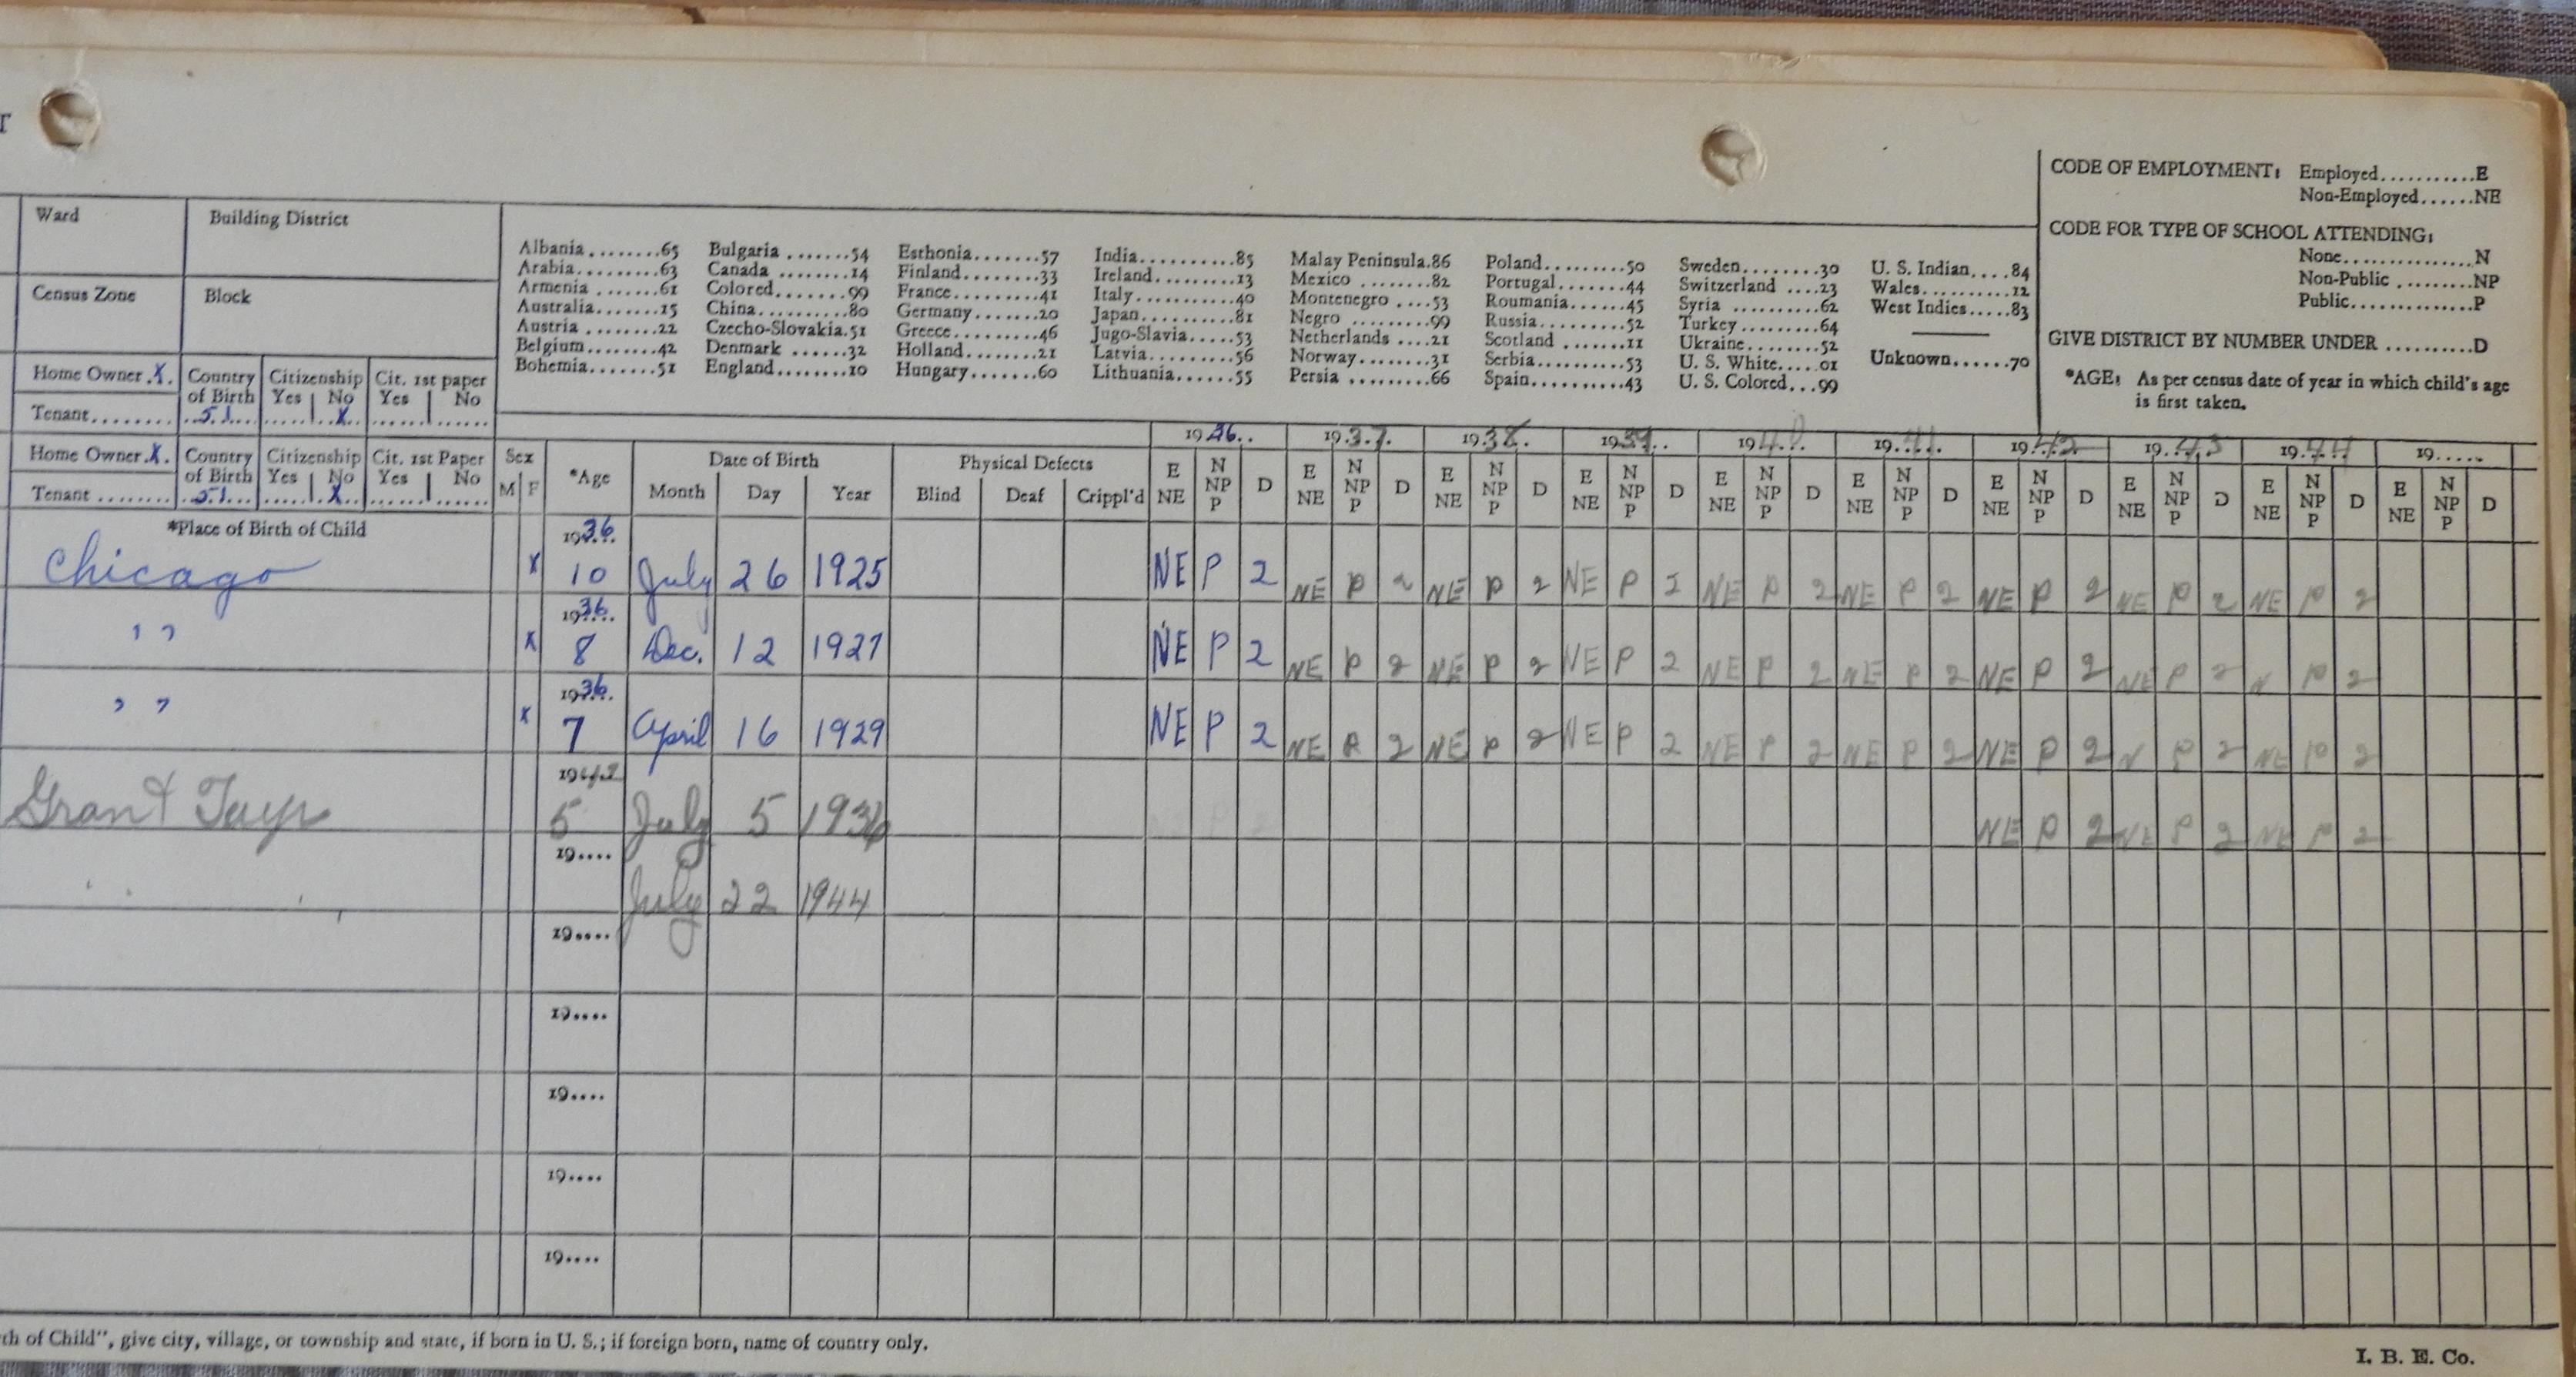 Ward Building District
Census Zone Block
Home Owner.X. Country of Birth Citizenship Yes No Cit. 1st paper Yes No
Tenant........ 51 X
Home Owner.X. Country of Birth Citizenship Yes No Cit. 1st Paper Yes No
Tenant ........ 51 X
Albania ........65 Bulgaria .......54 Esthonia.......57 India..........85 Malay Peninsula.86 Poland.........50 Sweden........30 U. S. Indian....84
Arabia.........63 Canada ........14 Finland........33 Ireland.........13 Mexico ........82 Portugal .......44 Switzerland ....23 Wales..........12
Armenia .......61 Colored........99 France.........41 Italy...........40 Montenegro ....53 Roumania......45 Syria ..........62 West Indies.....83
Australia.......15 China..........80 Germany.......20 Japan..........81 Negro .........99 Russia..........52 Turkey .........64
Austria ........22 Czecho-Slovakia.51 Greece.........46 Jugo-Slavia.....53 Netherlands ....21 Scotland .......11 Ukraine........52
Belgium........42 Denmark ......32 Holland........21 Latvia.........56 Norway........31 Serbia..........53 U. S. White.....01 Unknown......70
Bohemia.......51 England........10 Hungary.......60 Lithuania......55 Persia .........66 Spain..........43 U. S. Colored...99
CODE OF EMPLOYMENT: Employed...........E
Non-Employed......NE
CODE FOR TYPE OF SCHOOL ATTENDING:
None...............N
Non-Public .........NP
Public..............P
GIVE DISTRICT BY NUMBER UNDER ..........D
*AGE: As per census date of year in which child's age
is first taken.
1936 1937 1938 1939 1940 1941 1942 1943 1944 19.....
*Place of Birth of Child Sex M F *Age Date of Birth Month Day Year Physical Defects Blind Deaf Crippl'd E NE N NP P D E NE N NP P D E NE N NP P D E NE N NP P D E NE N NP P D E NE N NP P D E NE N NP P D E NE N NP P D E NE N NP P D E NE N NP P D
1936
Chicago X 10 July 26 1925 NE P 2 NE P 2 NE P 2 NE P 2 NE P 2 NE P 2 NE P 2 NE P 2 NE P 2
1936
" X 8 Dec. 12 1927 NE P 2 NE P 2 NE P 2 NE P 2 NE P 2 NE P 2 NE P 2 NE P 2 N P 2
1936
" X 7 April 16 1929 NE P 2 NE P 2 NE P 2 NE P 2 NE P 2 NE P 2 NE P 2 N P 2 NE P 2
1942
Grant Twp 5 July 5 1936 NE P 2 NE P 2 NE P 2
19....
July 22 1944
19....
19....
19....
19....
19....
th of Child", give city, village, or township and state, if born in U. S.; if foreign born, name of country only.
I. B. E. Co.